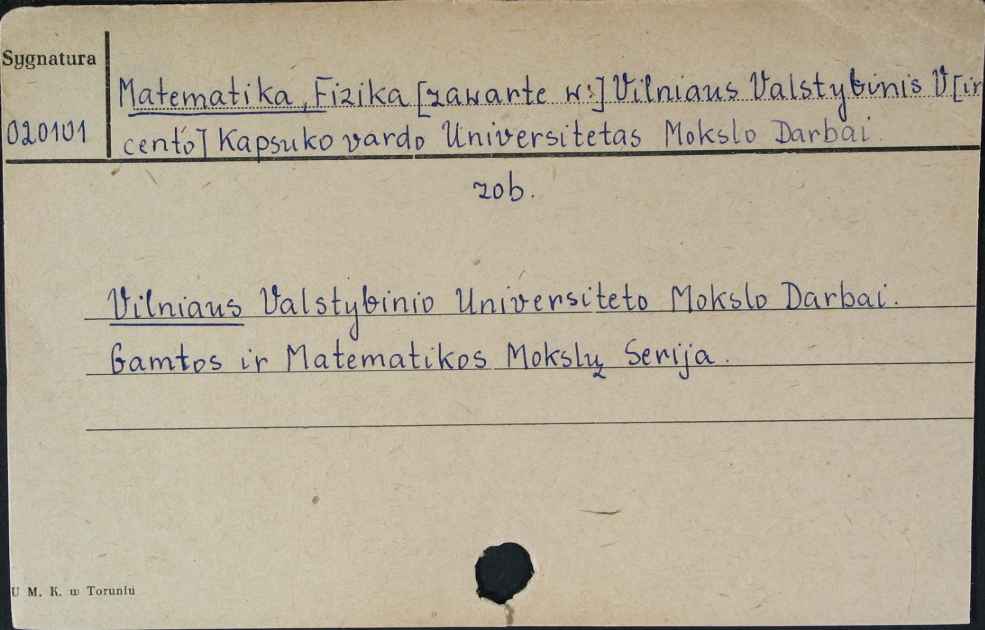 Sygnatura
Matematika, Fizika [zawarte w:] Vilniaus Valstybinis V[in
020101
centó] Kapsuko vardo Universitetas Mokslo Darbai.
zob.
Vilniaus Valstybinio Universiteto Mokslo Darbai.
Gamtos ir Matematikos Mokslų Serija.
U M. K. w Toruniu